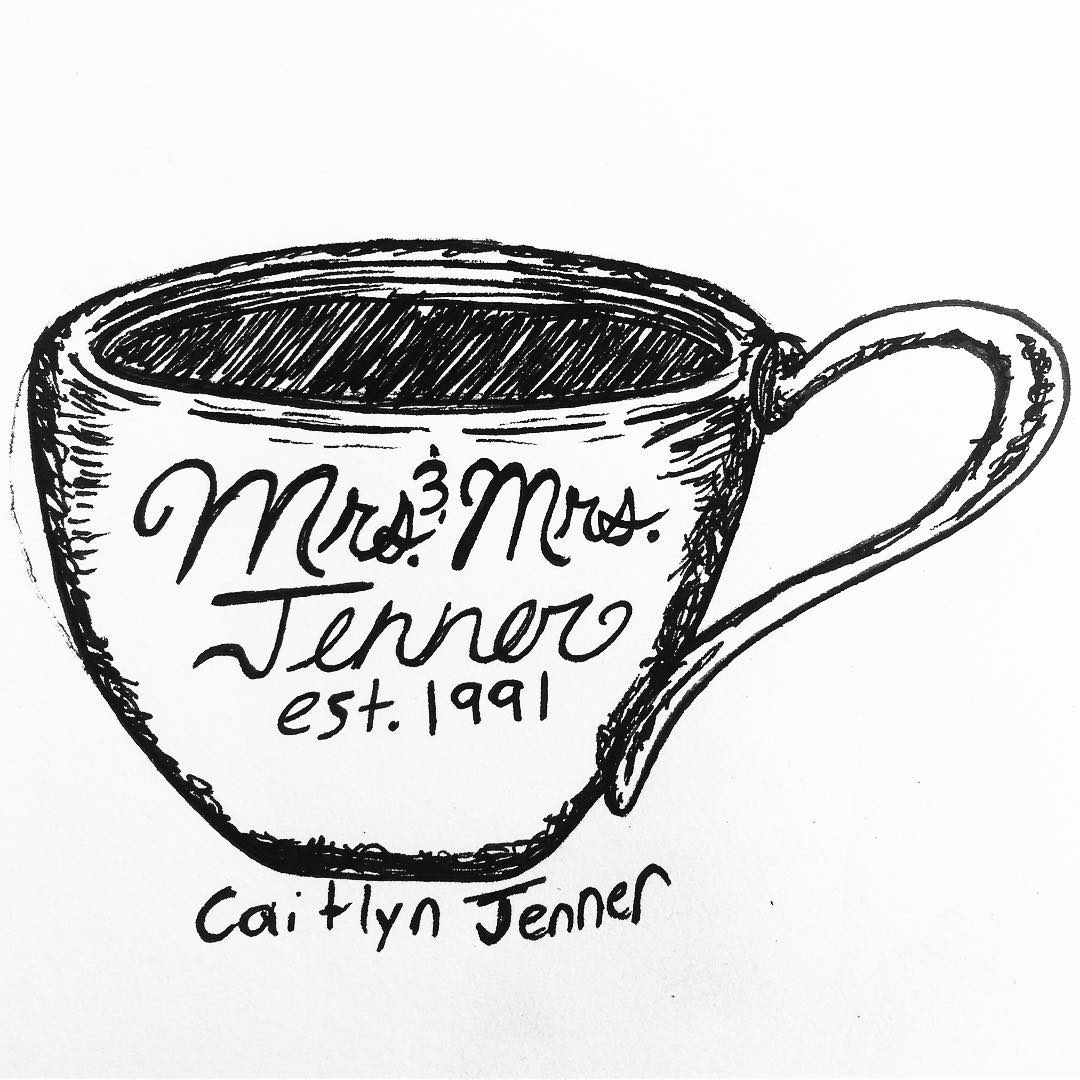 Mrs. & Mrs.
Jenner
est. 1991
Caitlyn Jenner